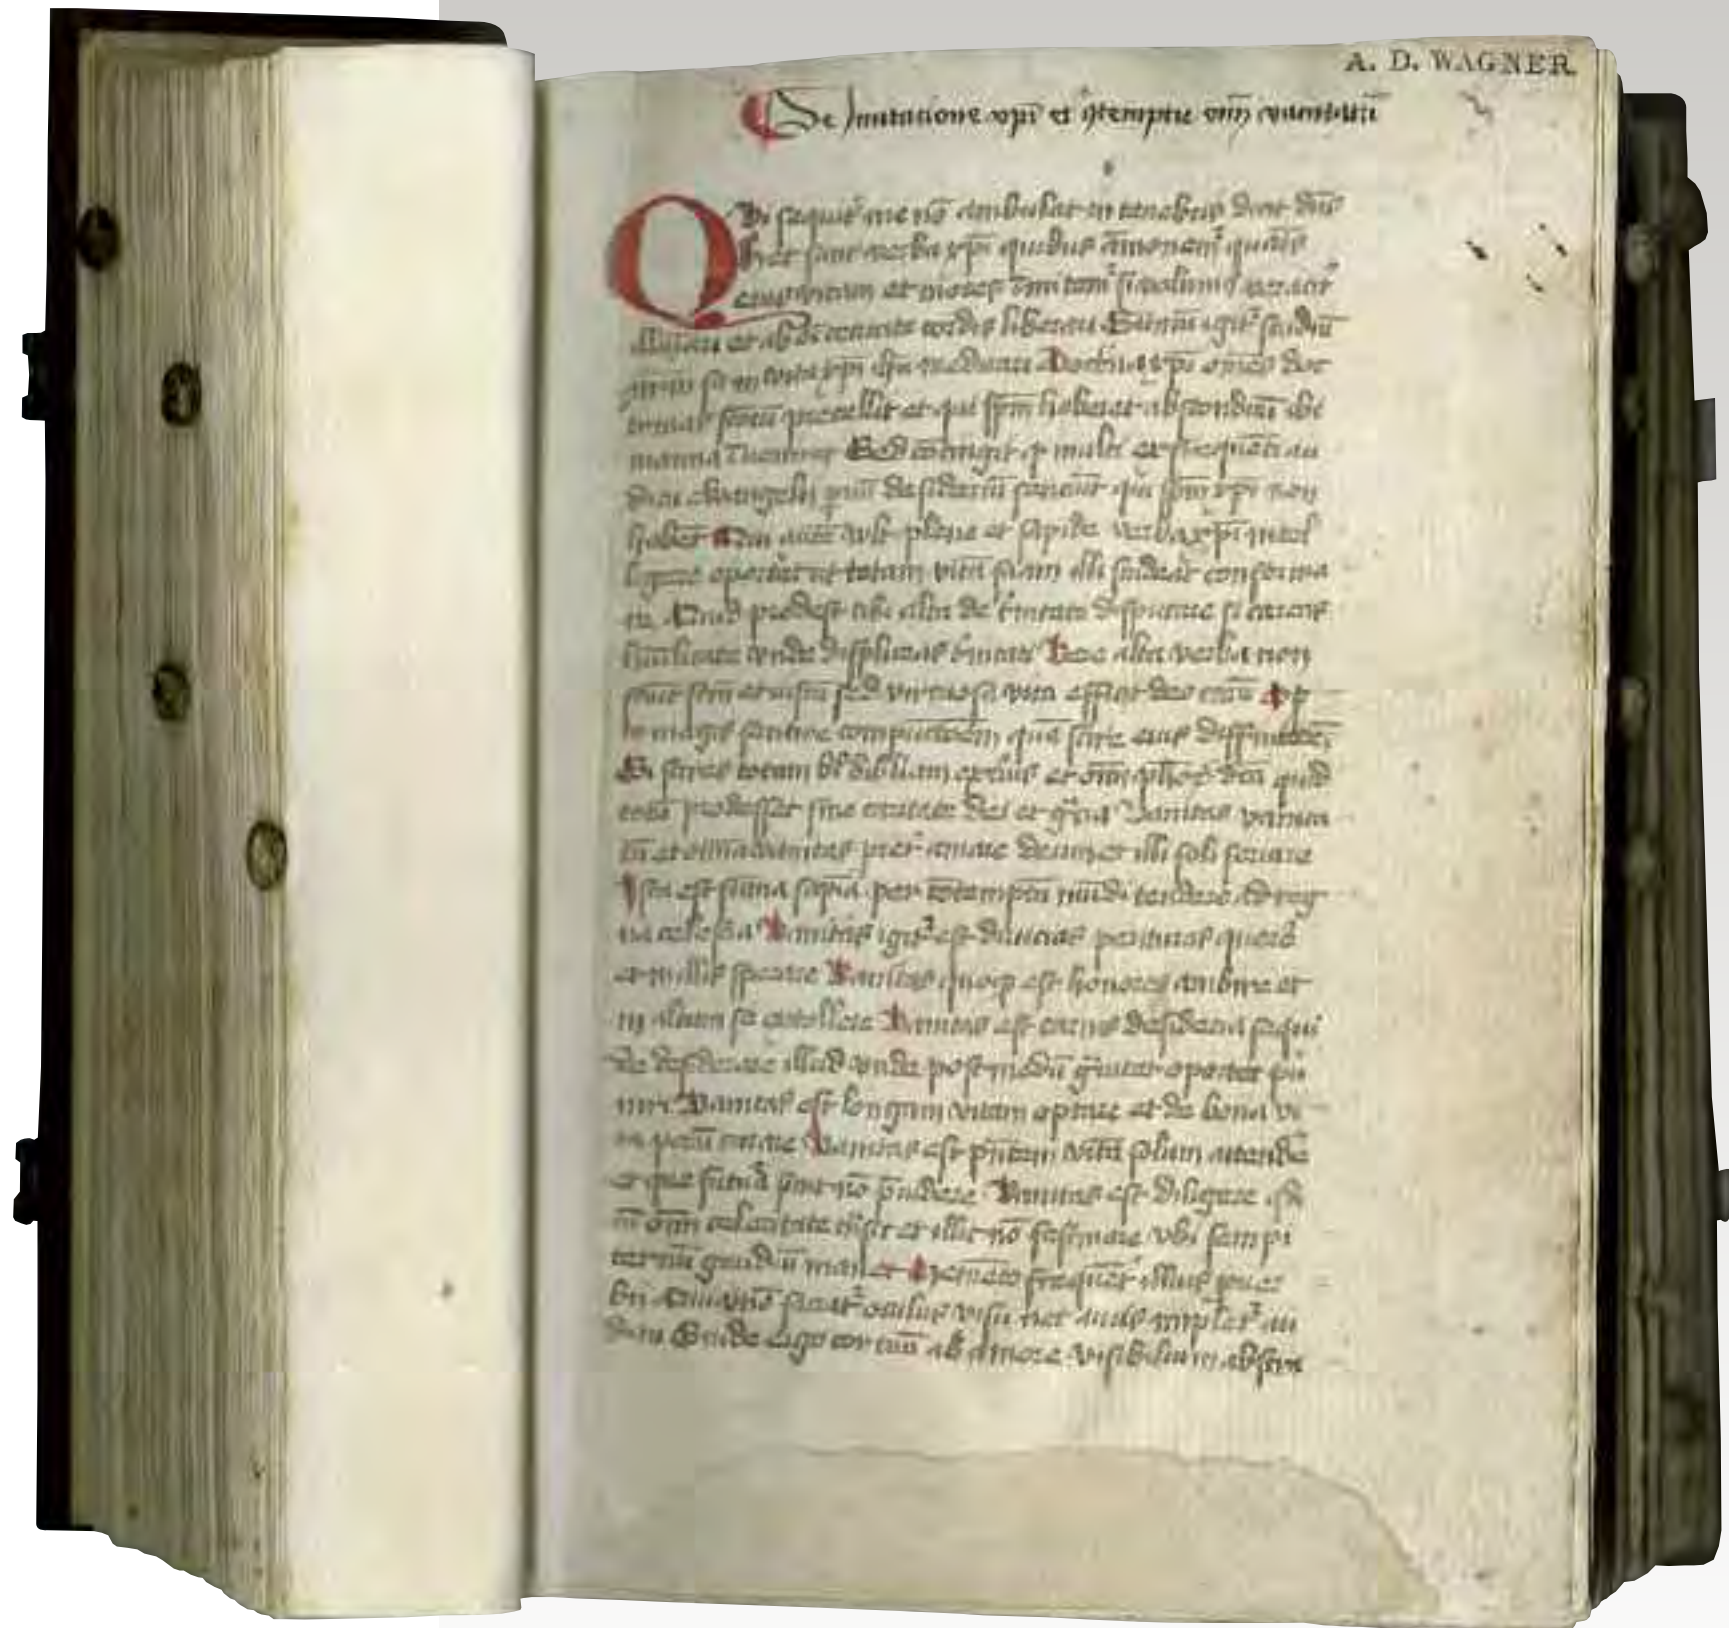 A. D. WAGNER
De Imitacione xpi et ꝯtemptu om̄ vanitatū
Qvi sequit᷑ me nō ambulat in tenebris dicit dn̄s
hec sunt verba xp̄i quibus āmonem᷑ quaten̄
eius vitam et mores imitem᷑ si volumus
illu͞iari et ab oī cecitate cordis liberari Sum̄u igit᷑ studiū
nr̄m sit in vita xp̄i Doctrina xp̄i omēs doc
trinas sctōru precellit et qui sp̄m haberet absconditū ibi
manna īueniret Sed cōtingit ꝙ multi ex frequēti au
ditu ewangelij desideriū senciūt quia sp̄m xp̄i non
habēt Qui autē vult plene et sapide verba xp̄i intel
ligere oportet ut totam vitā suam illi studeat conforma
re Quid prodest tibi alta de t̄nitate disputare si careas
hūilitate unde displiceas t̄nitati Vere alta verba non
faciūt sctm̄ et iustū sed virtuosa vita efficit deo carū Op
to magis sentire compunctōem quā scire eius diffinitōem
Si scires totam bibliam exterius et om̄i ph̄orū dicta quid
totū prodesset sine caritate dei et gr̄a Vanitas vanita
tū et omnia vanitas preter amare deum et illi soli seruire
Ista est sūma sapīa per cōtemptū mūdi tendere ad reg
na celestia Vanitas igit᷑ est diuicias perituras querere
et in illis sperare Vanitas quoqꝫ est honores ambire et
in altum se extollere Vanitas est carnis desideria sequi
et desiderare illud unde postmodū g̃uiter oportet pu
niri Vanitas est longam vitam optare et de bona vi
ta parū curare Vanitas est p̄ntem vitā solum attende
et que futura sunt nō p̄uidere Vanitas est diligere
cū om̄i celeritate t̄nsit et illic nō festinare vbi sempi
ternū gaudiū manet Memēto frequēter illius prouer
bij Quia nō saciat᷑ oculus visu nec auris implet᷑ au
ditu Stude ergo cor tuū ab amore visibilium abstra